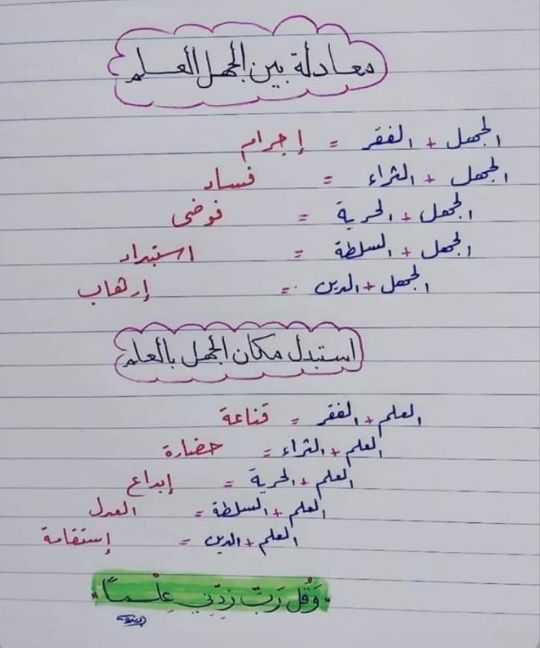 معادلة بين الجهل العلم
الجهل + الفقر = إجرام
الجهل + الثراء = فساد
الجهل + الحرية = فوضى
الجهل + السلطة = استبداد
الجهل + الدين = إرهاب
استبدل مكان الجهل بالعلم
العلم + الفقر = قناعة
العلم + الثراء = حضارة
العلم + الحرية = إبداع
العلم + السلطة = العدل
العلم + الدين = إستقامة
وَقُل رَبِّ زِدْنِي عِلْمًا